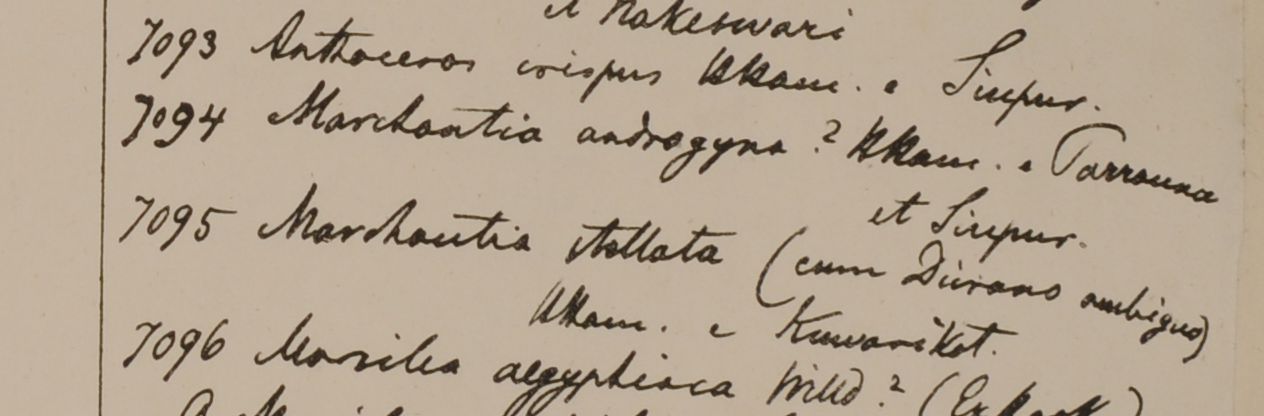 et Nakeswari
7093 Anthoceros crispus HHam. e Sirpur.
7094 Marchantia androgyna ? HHam. e Parrouna
et Sirpur.
7095 Marchantia stellata (cum Dicrano ambiguo)
HHam. e Kuwarikot.
7096 Marsilea aegyptiaca Willd ? (Ex